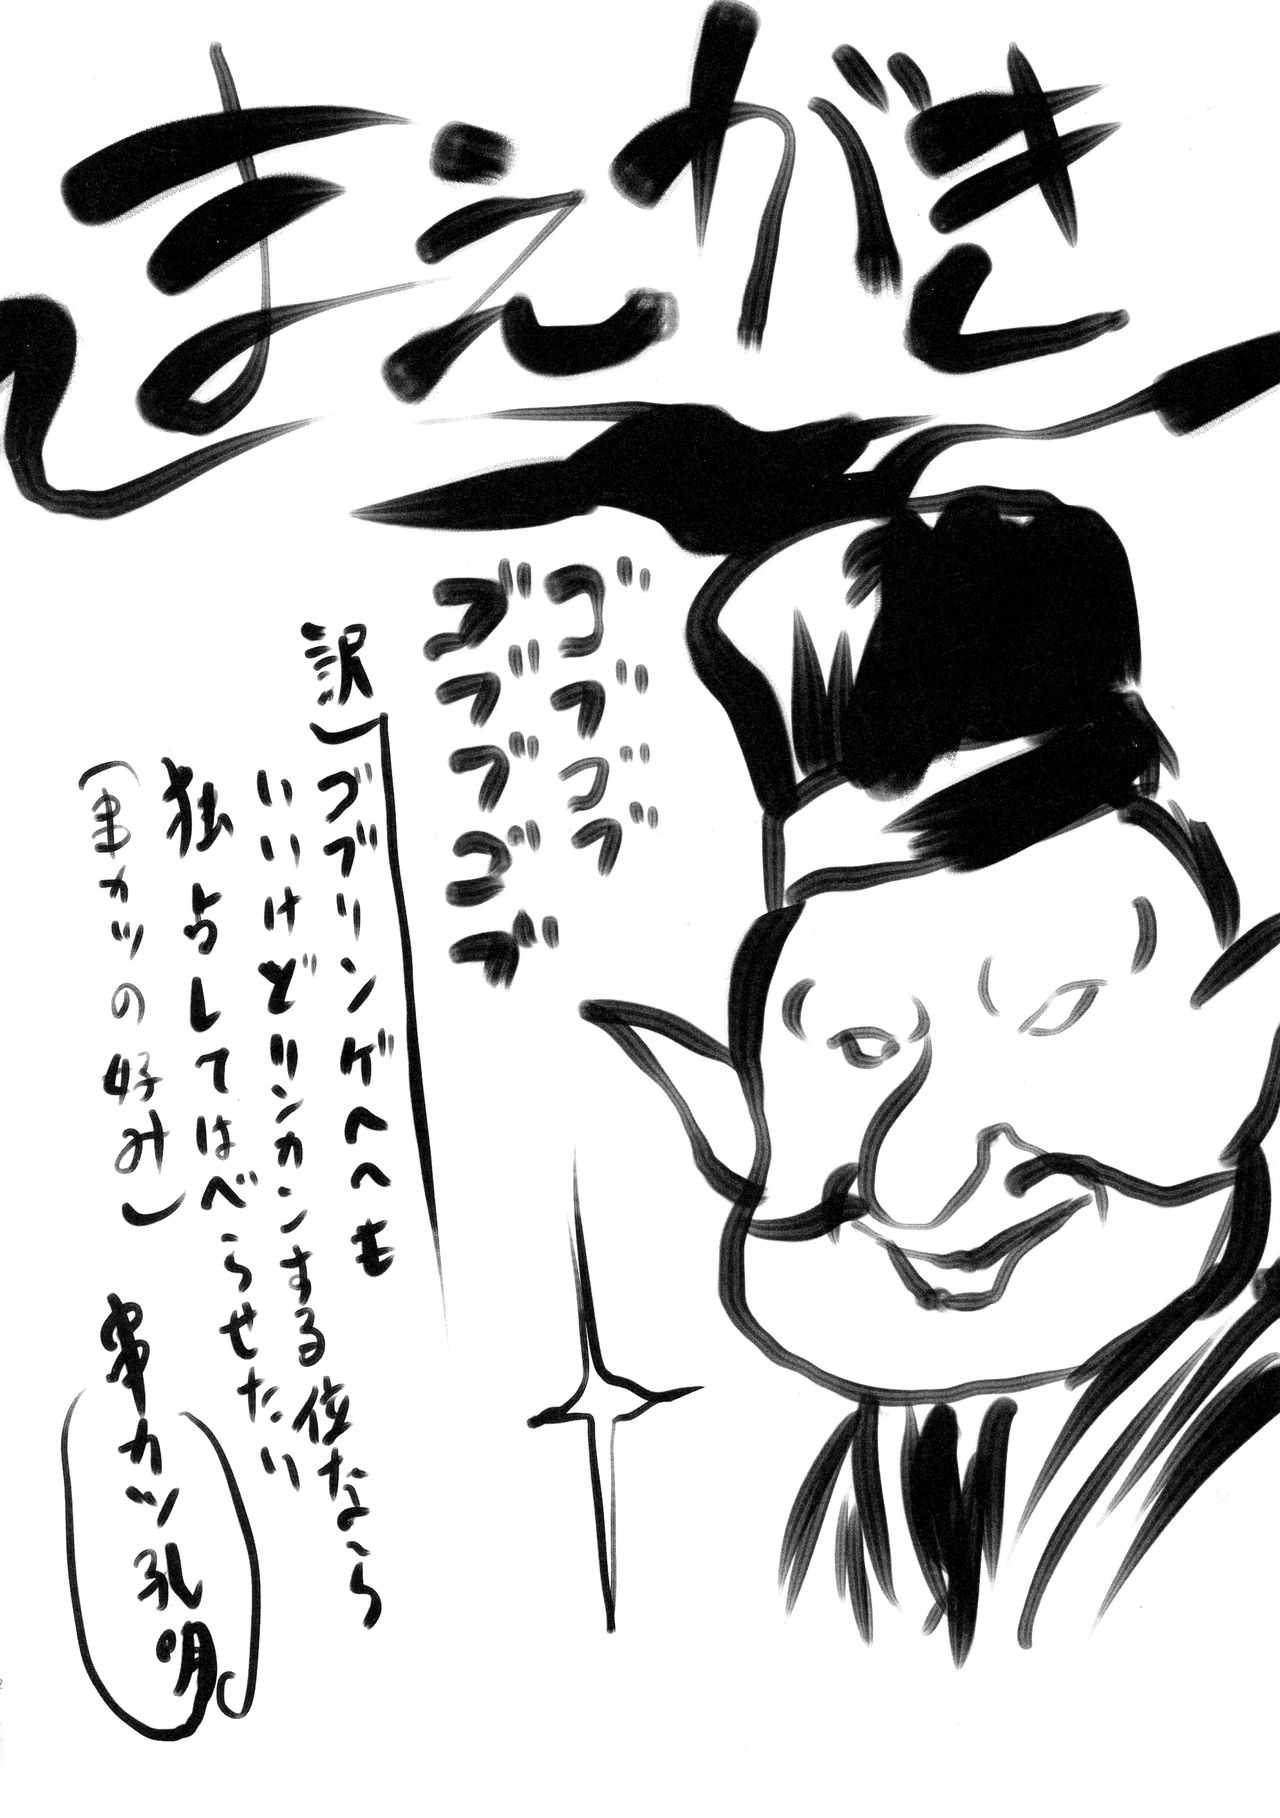 まえがき
ゴブゴブ
ゴブブゴブ
訳)ゴブリンゲへへも
いいけどリンカンする位なら
独占してはべらせたい
(串カツの好み)
串カツ孔明